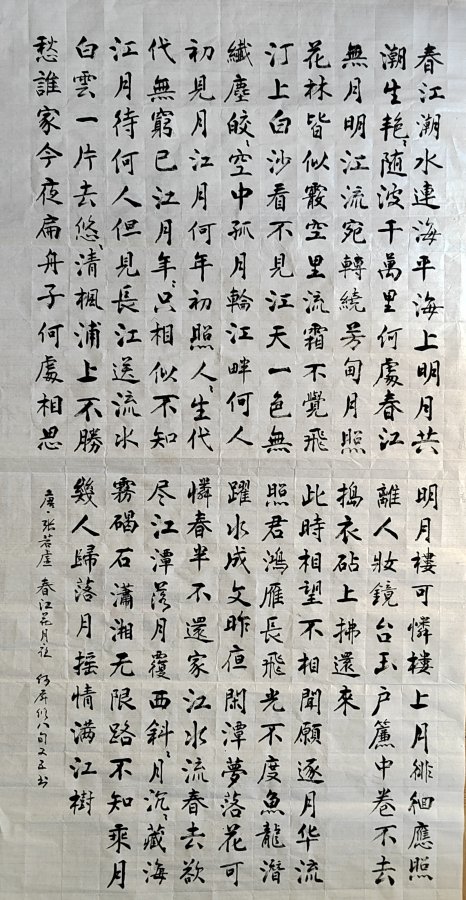 春江潮水連海平海上明月共
潮生艳〻随波千萬里何處春江
無月明江流宛轉繞芳甸月照
花林皆似霰空里流霜不覺飛
汀上白沙看不見江天一色無
纖塵皎〻空中孤月輪江畔何人
初見月江月何年初照人〻生代
代無窮已江月年〻只相似不知
江月待何人但見長江送流水
白雲一片去悠〻清楓浦上不勝
愁誰家今夜扁舟子何處相思
明月樓可憐樓上月徘徊應照
離人妝鏡台玉户簾中卷不去
搗衣砧上拂還來
此時相望不相聞願逐月华流
照君鴻雁長飛光不度魚龍潜
躍水成文昨夜閑潭夢落花可
憐春半不還家江水流春去欲
尽江潭落月覆西斜〻月沉〻藏海
霧碣石瀟湘无限路不知乘月
幾人歸落月摇情满江樹
唐·张若虚 春江花月夜